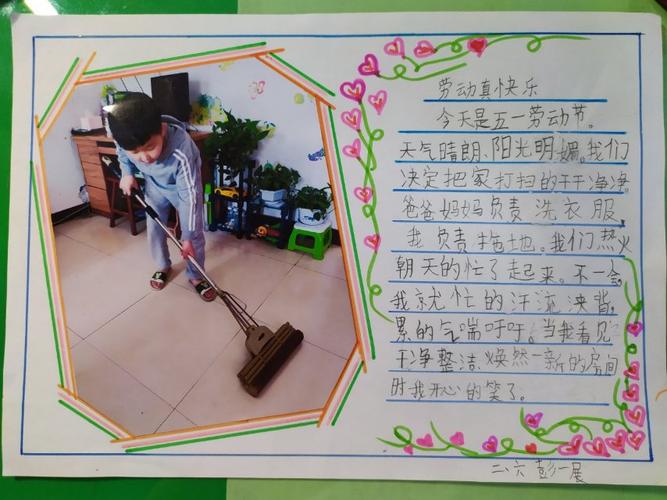 劳动真快乐
今天是五一劳动节。
天气晴朗、阳光明媚。我们
决定把家打扫的干干净净。
爸爸妈妈负责洗衣服,
我负责拖地。我们热火
朝天的忙了起来。不一会,
我就忙的汗流浃背,
累的气喘吁吁。当我看见
干净整洁焕然一新的房间
时我开心的笑了。
二、六 彭一展